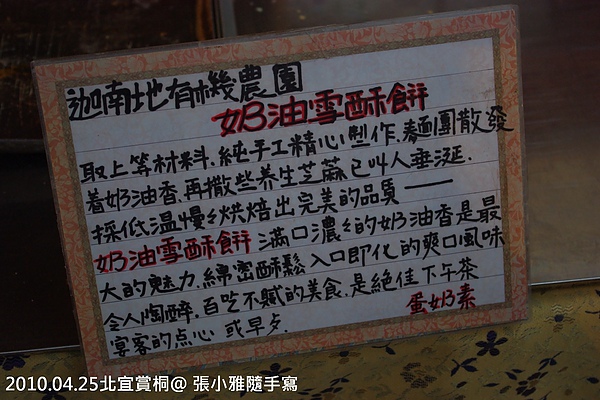 迦喃地有機農園
奶油雪酥餅
取上等材料.純手工精心製作.麵團散發
着奶油香.再撒些养生芝蔴已叫人垂涎.
採低温慢烘焙出完美的品質——
奶油雪酥餅 滿口濃的奶油香是最
大的魅力.綿密酥鬆入口即化的爽口風味
令人陶醉.百吃不膩的美食.是絶佳下午茶
宴客的点心 或早歺.
蛋奶素
2010.04.25北宜賞桐@ 張小雅隨手寫